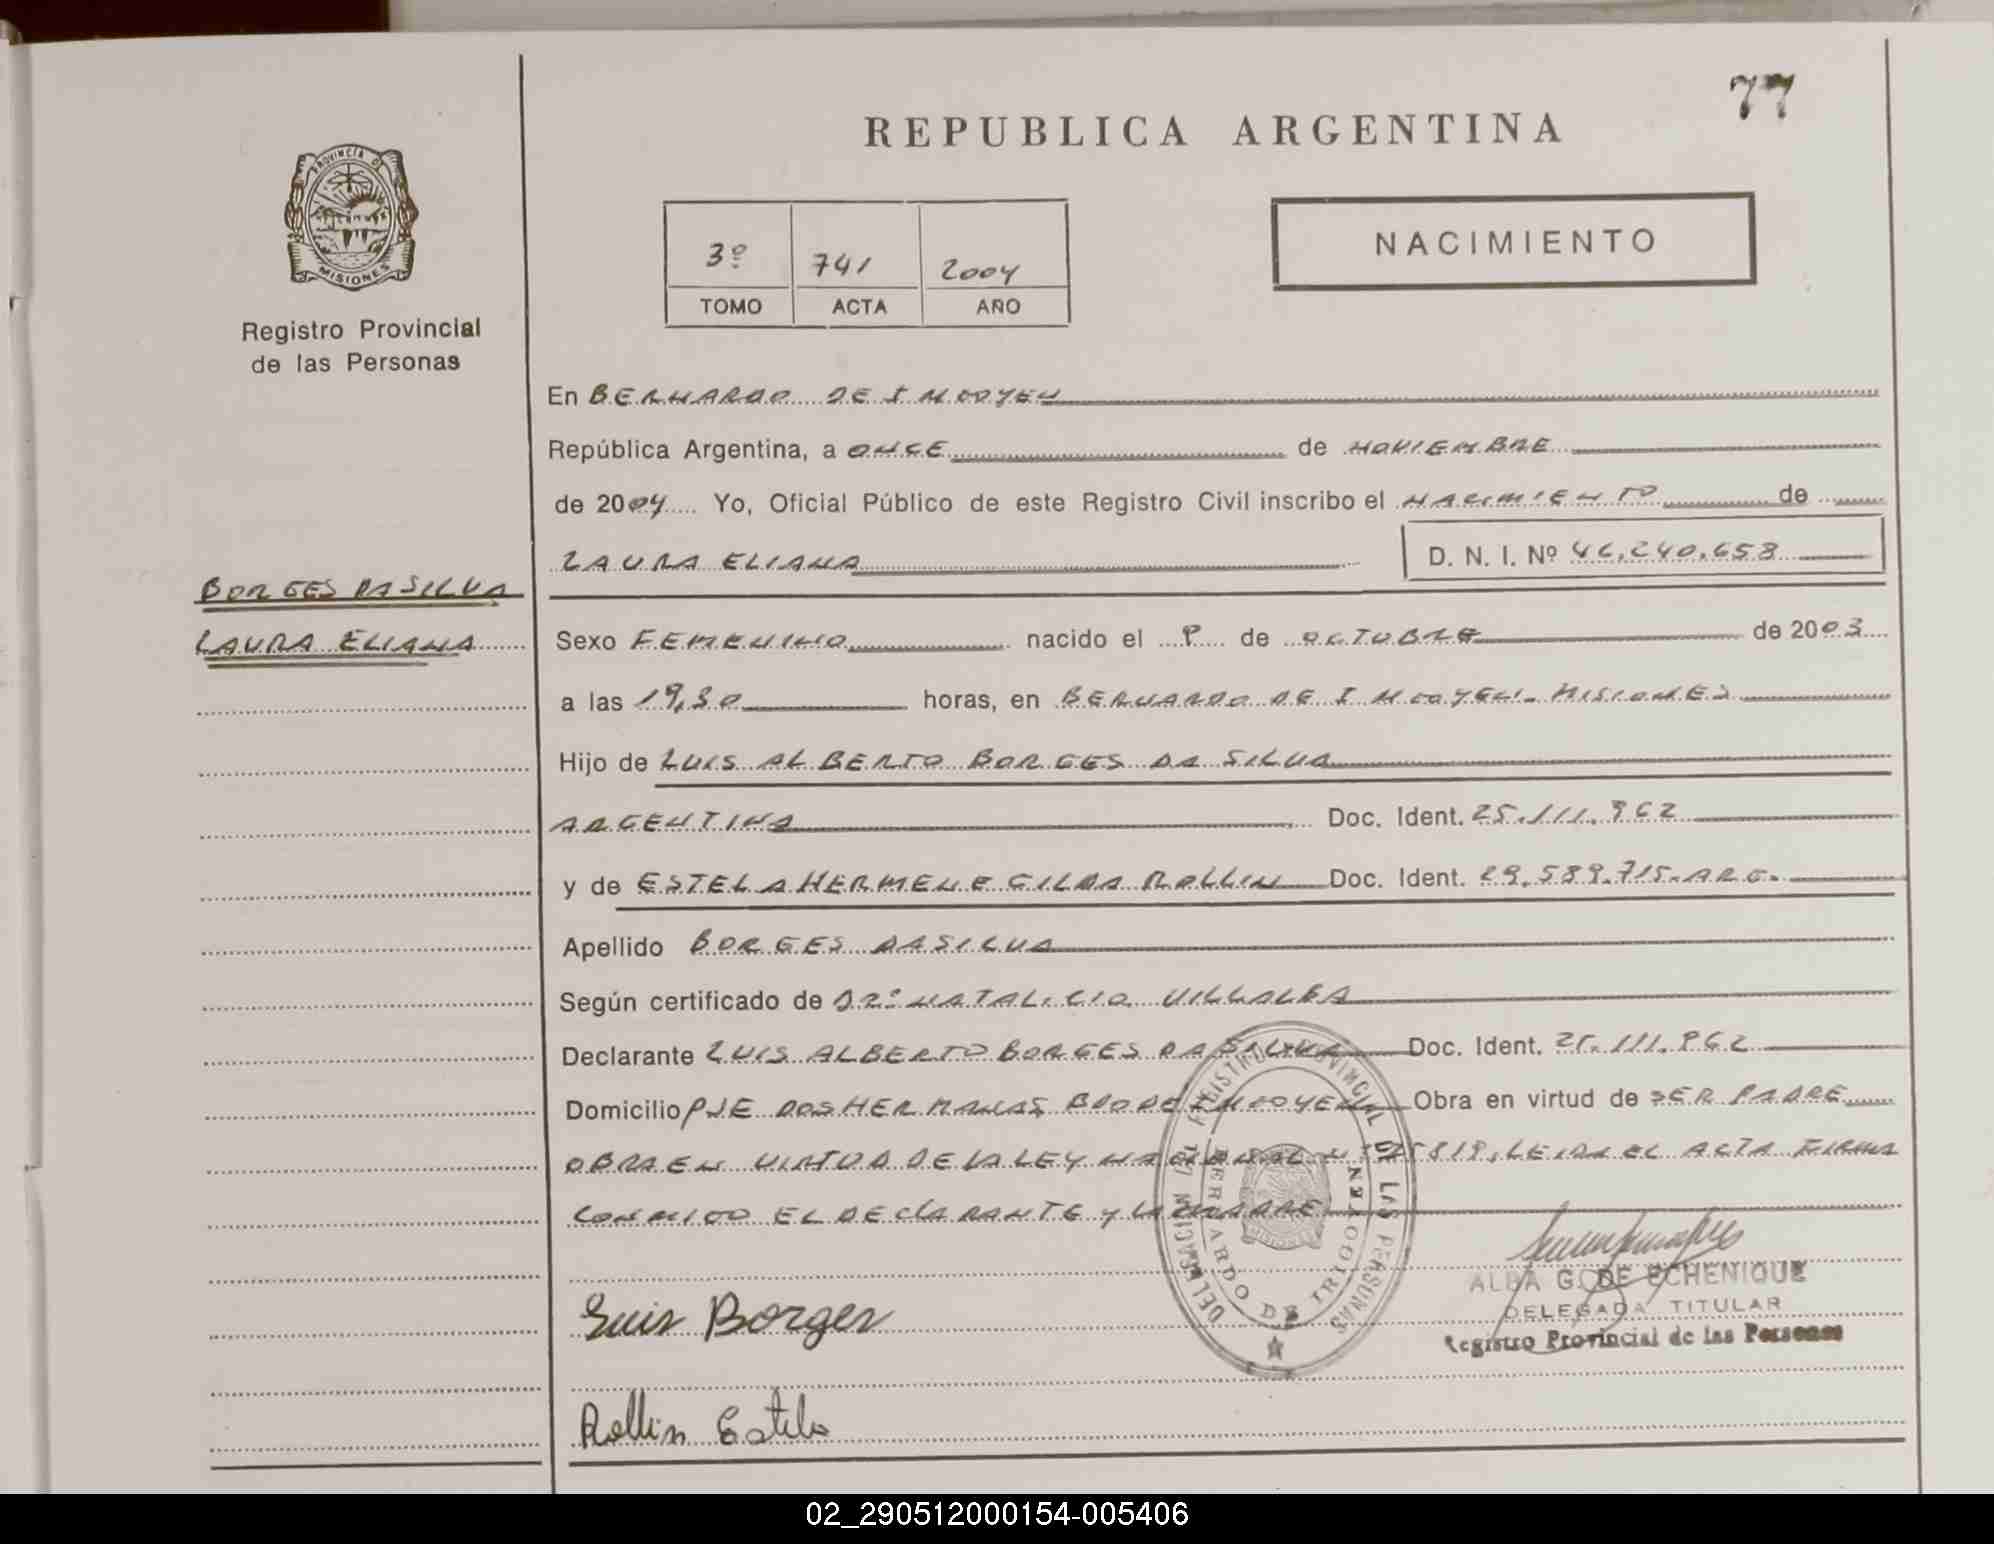 77
REPUBLICA ARGENTINA
PROVINCIA DE
MISIONES
3º 741 2004
TOMO ACTA AÑO
NACIMIENTO
Registro Provincial
de las Personas
En BERNARDO DE IRIGOYEN
República Argentina, a ONCE de NOVIEMBRE
de 2004 Yo, Oficial Público de este Registro Civil inscribo el NACIMIENTO de
LAURA ELIANA D. N. I. Nº 46.240.658
BORGES DA SILVA
LAURA ELIANA
Sexo FEMENINO nacido el 9 de OCTUBRE de 2003
a las 19,30 horas, en BERNARDO DE IRIGOYEN - MISIONES
Hijo de LUIS ALBERTO BORGES DA SILVA
ARGENTINA Doc. Ident. 25.111.962
y de ESTELA HERMENEGILDA ROLLIN Doc. Ident. 29.589.715. ARG.
Apellido BORGES DA SILVA
Según certificado de DR. NATALICIO VILLALBA
Declarante LUIS ALBERTO BORGES DA SILVA Doc. Ident. 25.111.962
Domicilio PJE DOS HERMANAS BDO DE IRIGOYEN Obra en virtud de SER PADRE
OBRA EN VIRTUD DE LA LEY NACIONAL Nº 25819, LEIDA EL ACTA FIRMA
CONMIGO EL DECLARANTE Y LA MADRE
DELEGACION DEL REGISTRO PROVINCIAL DE LAS PERSONAS
BERNARDO DE IRIGOYEN
Luis Borges
ALBA G. DE ECHENIQUE
DELEGADA TITULAR
Registro Provincial de las Personas
Rollin Estela
02_290512000154-005406